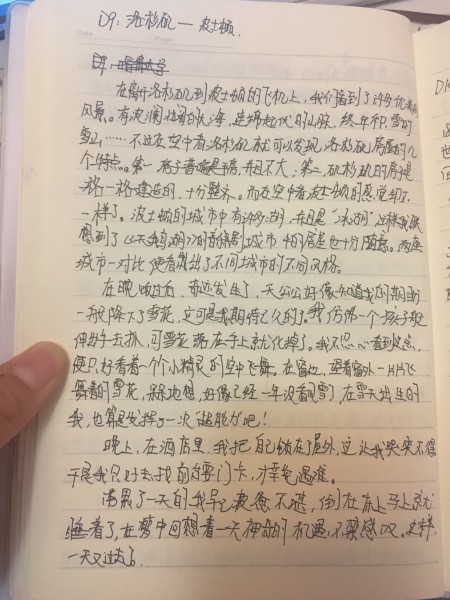 D9: 洛杉矶 — 波士顿.
在离开洛杉矶到波士顿的飞机上，我们看到了许多优美的
风景。有波澜壮阔的大海，连绵起伏的山脉，终年积雪的
雪山……不过在空中看洛杉矶就可以发现洛杉矶房屋的几
个特点。第一，房子普遍是矮，并且不大；第二，洛杉矶的房是
一格一格建造的，十分整齐。而在空中看波士顿的感觉却不
一样了。波士顿的城市中有许多湖，并且是"冰湖"
想到了《天鹅湖》城市中的房屋也十分随意。两座
城市一对比使看出了不同城市的不同风格。
在晚饭过后，奇迹发生了，天公公好像知道我的期盼
一般降下了雪花，这可是我期待已久的了。我仿佛一个孩子般
伸出手去抓，可雪花落在手上就化掉了。我不忍心看到这点，
便只好看着一个个小精灵的空中飞舞。在窗边，望着窗外一片片飞
舞着的雪花，呆呆地想，好像已经一年没看见雪了，在雪天出生的
我，也算是发挥了一次"超能力"吧！
晚上，在酒店里，我把自己锁在了屋外，这让我哭笑不得
于是我只好去找前台要门卡，才幸免遇难。
劳累了一天的我早已疲惫不堪，倒在床上马上就
睡着了，在梦中回想着一天神奇的机遇，不禁感叹。这样，
一天又过去了